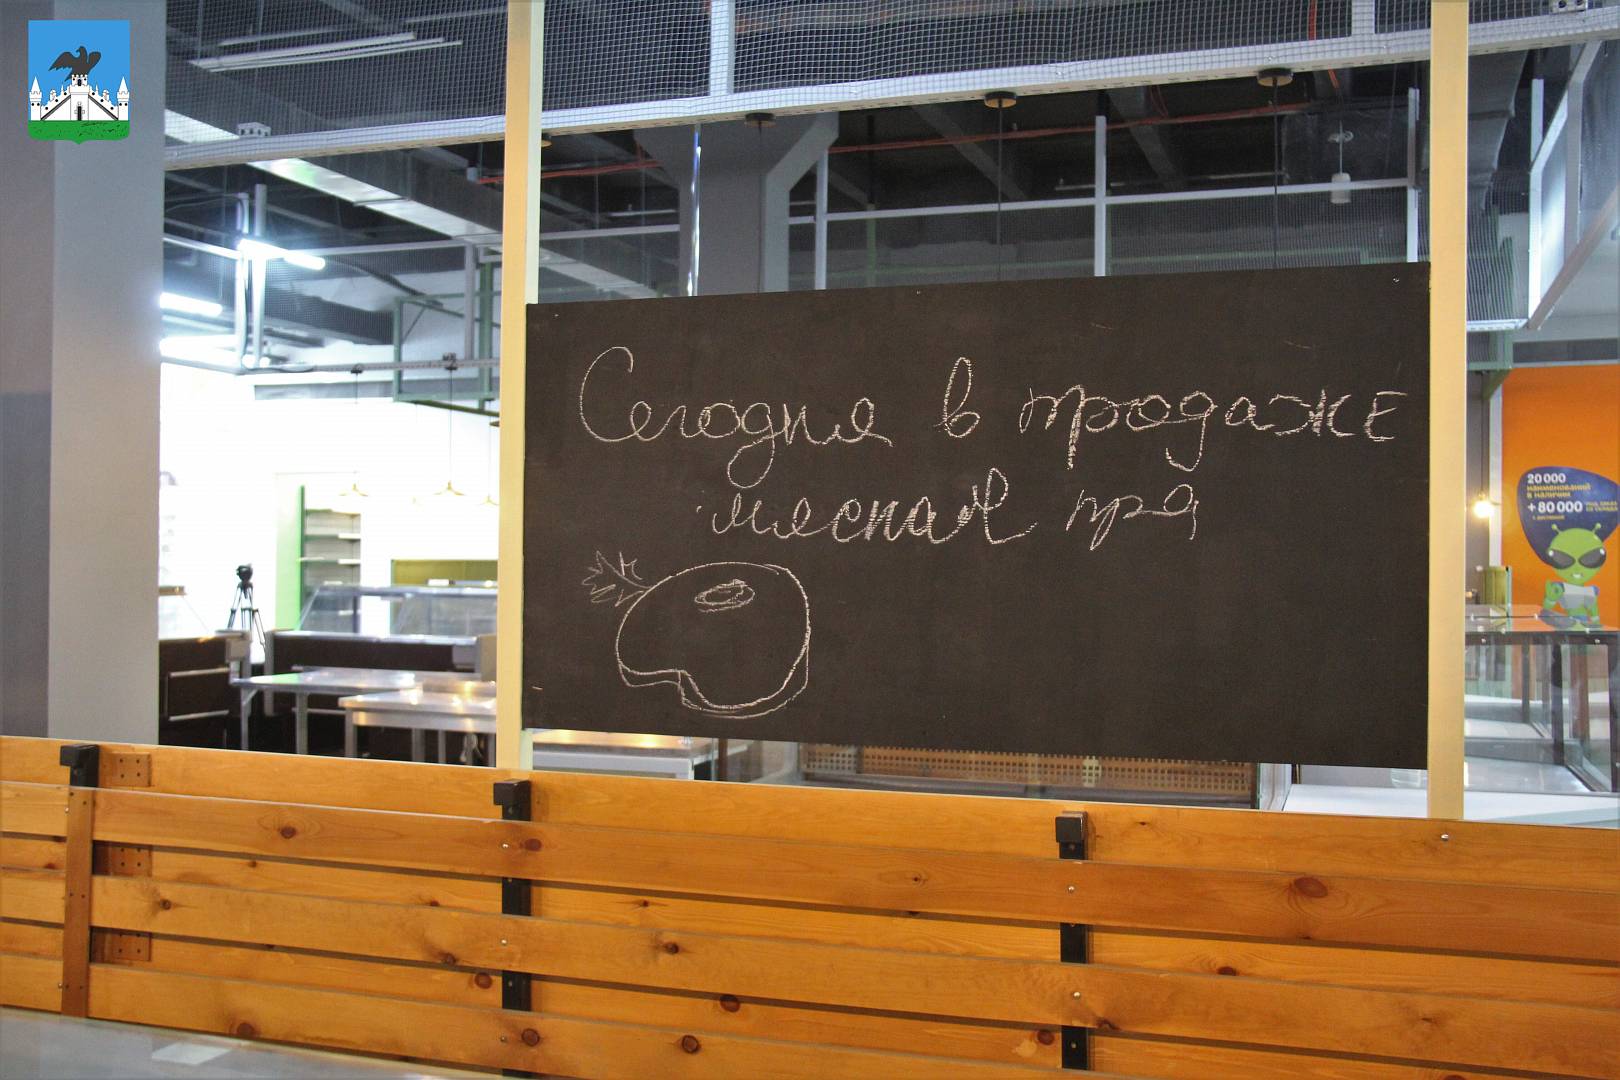 Сегодня в продаже
мясная пра
20 000
наименований
в наличии
+ 80 000